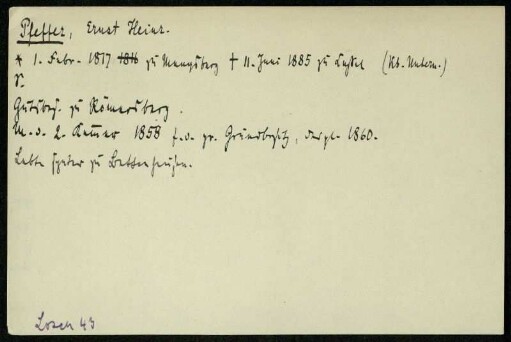 Pfeffer, Ernst Heinr.
* 1. Febr. 1817 1816 zu Mengsberg † 11. Juni 1885 zu (Kb. Untern.)
V.
Gutsbes. zu Römersberg.
M. d. 2. Kammer 1858 f. d. gr. Grundbesitz, desgl. 1860.
Lebte später zu Bettenhausen.
Losch 43